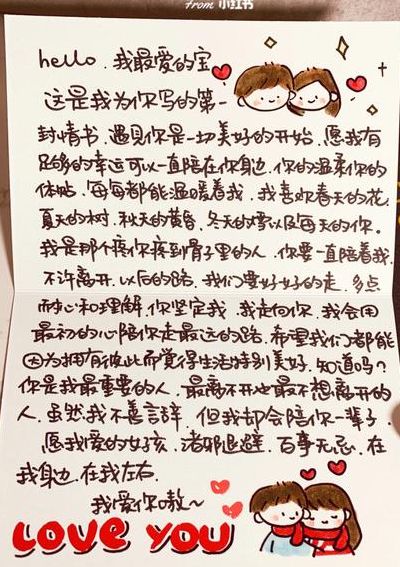 from 小红书
hello，我最爱的宝
这是我为你写的第一
封情书，遇见你是一切美好的开始，愿我有
足够的幸运可以一直陪在你身边，你的温柔你的
体贴，每每都能温暖着我，我喜欢春天的花，
夏天的树，秋天的黄昏，冬天的雪以及每天的你。
我是那个疼你疼到骨子里的人，你要一直陪着我，
不许离开，以后的路，我们要好好的走，多点
耐心和理解，你坚定我，我走向你，我会用
最初的心陪你走最远的路，希望我们都能
因为拥有彼此而觉得生活特别美好，知道吗？
你是我最重要的人，最离不开也最不想离开的
人，虽然我不善言辞，但我却会陪你一辈子，
愿我爱的女孩，诸邪退避，百事无忌，在
我身边，在我左右，
我爱你嗷~
LOVE YOU